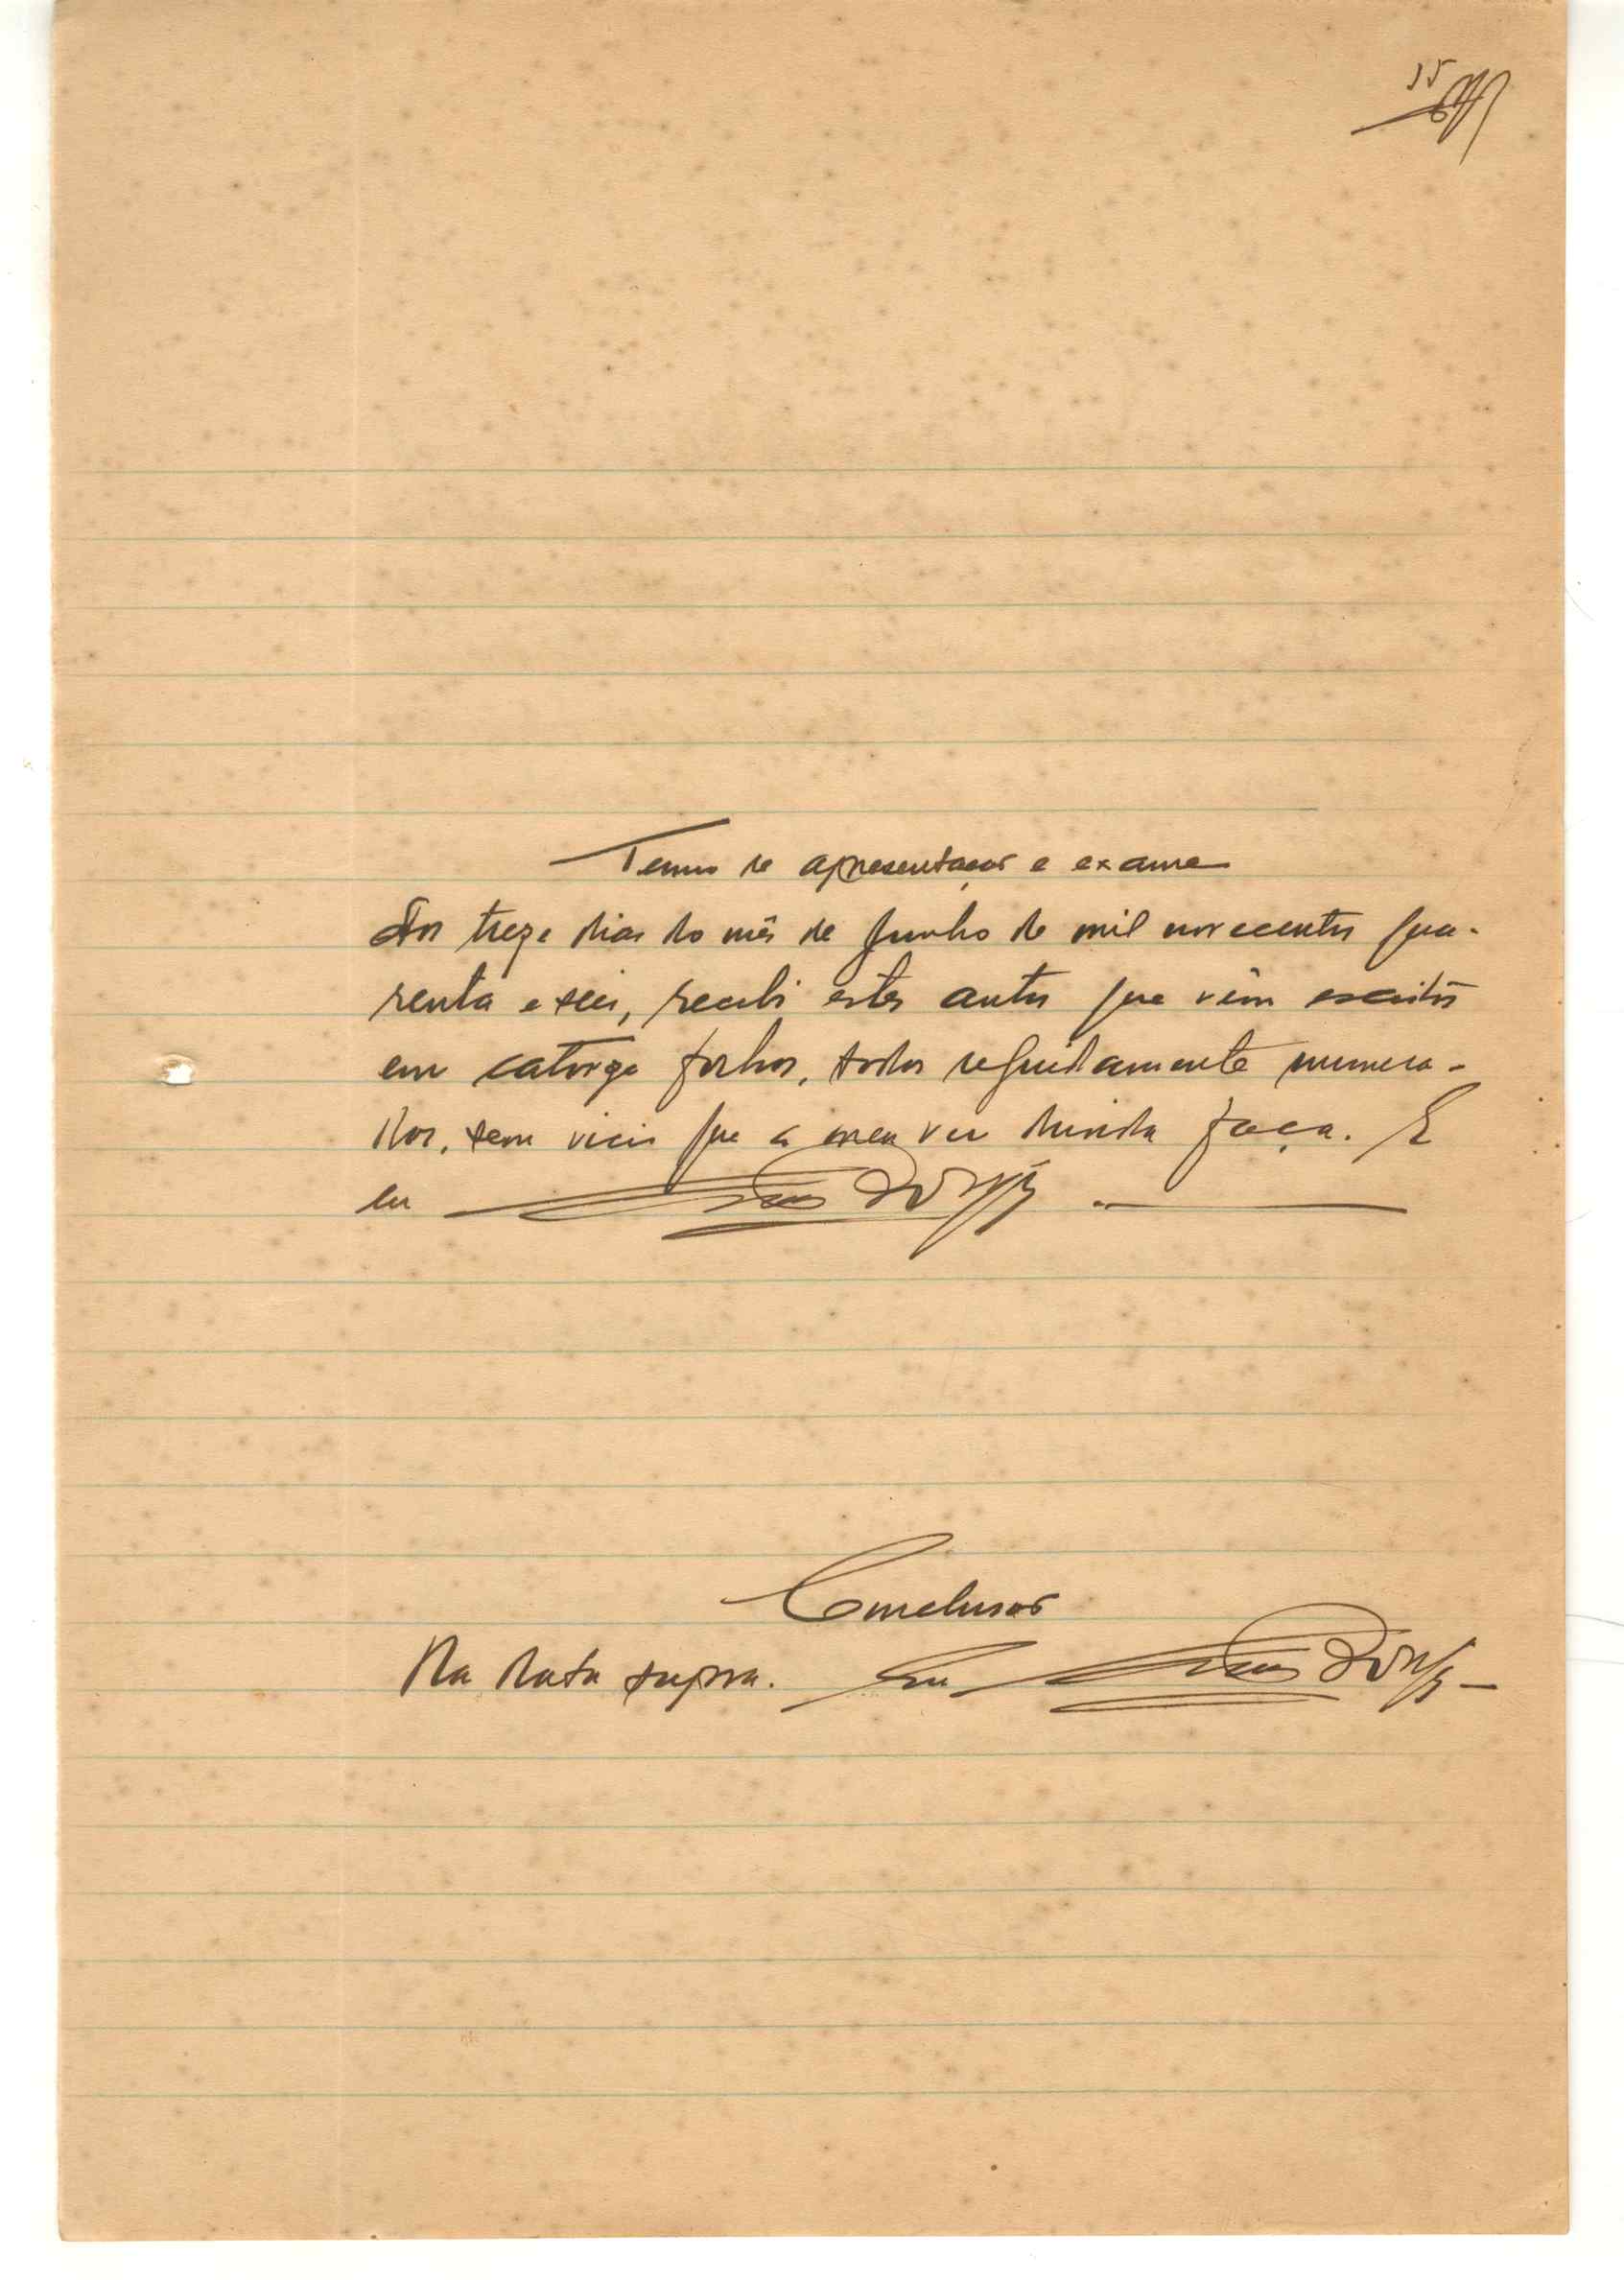 15
Termo de apresentação e exame
Aos treze dias do mês de Junho de mil novecentos qua-
renta e seis, recebi estes autos que vêm escritos
em catorze folhas, todas seguidamente numera-
das, sem vicio que a meu ver duvida faça. E
eu
Conclusão
Na data supra. Eu